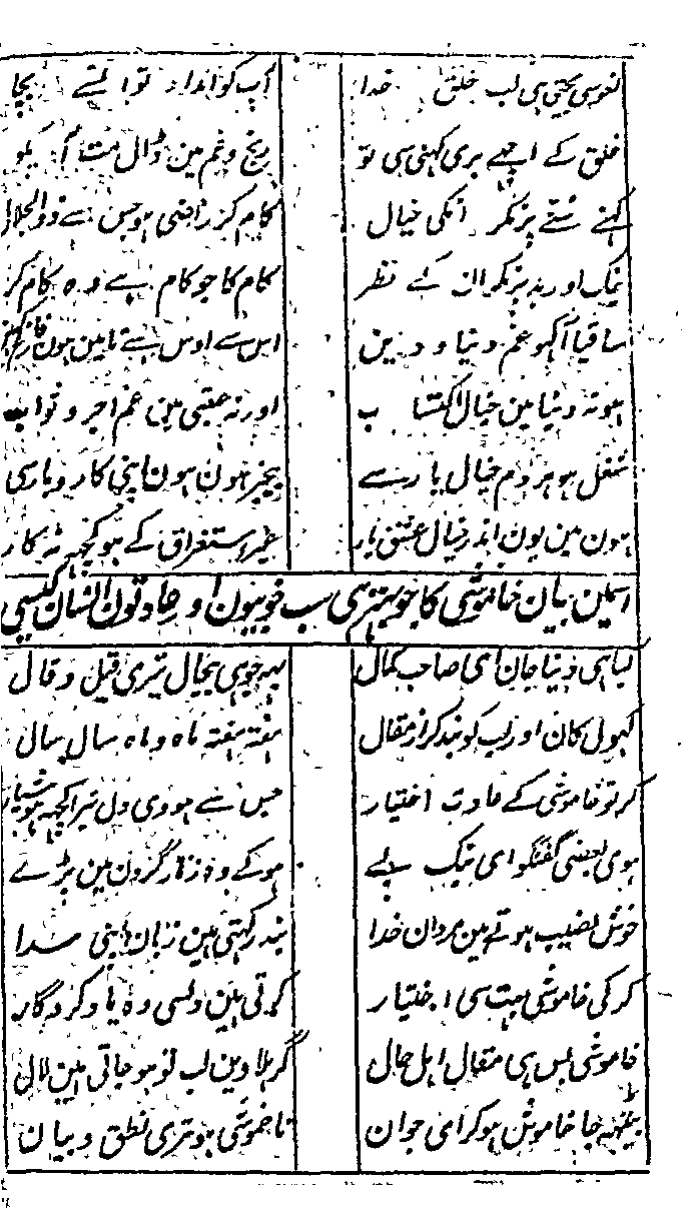 لغوسی بچتی ہی لب خلق خدا آپ کو انداز تو
خلق کے اچھے بری کہنی سی تو رنج و غم مین ڈال مت
کہنے سنے پر نکر انکی خیال کام کر راضی ہو جس سے ذوالجلال
نیک اور بد پر نکر ان کے نظر کام کا جو کام ہے وہ کام کر
ساقیا آکہو غم دنیا و دین اس سے اوس سے تا مین ہون
ہو نہ دنیا مین خیال اکتساب اور نہ عقبی مین غم اجر و ثواب
شغل ہو ہر دم خیال یار سے بیخبر ہون ہون اپنی کاروبار سی
ہون مین یون اندر خیال عشق یار غیر استغراق کے ہو کچہہ نہ کار
اسمین بیان خاموشی کا جو بہتر ہی سب خوبیون او عادتون انسان کیسی
کیا ہی دنیا جان ای صاحب کمال یہہ جو ہی بیجال تیری قیل و قال
کہول کان اور لب کو بند کر از مقال ہفتہ ہفتہ ماہ و ماہ سال سال
کر تو خاموشی کے عادت اختیار جس سے ہووی دل تیرا کچہہ ہوشیار
ہوی بعضی گفتگو ای نیک پے ہو کے وہ زنار گردن مین پڑے
خوش نصیب ہوتے ہین مردان خدا بند رکہتی ہین زبان اپنی سدا
کر کی خاموشی بہت سی اختیار کرتی ہین دلسی وہ یاد کردگار
خاموشی بس ہی مقال اہل حال گر ہلا دین لب تو ہو جاتی ہین لال
بیٹہہ جا خاموش ہو کر ای جوان تا خموشی ہو تری نطق و بیان